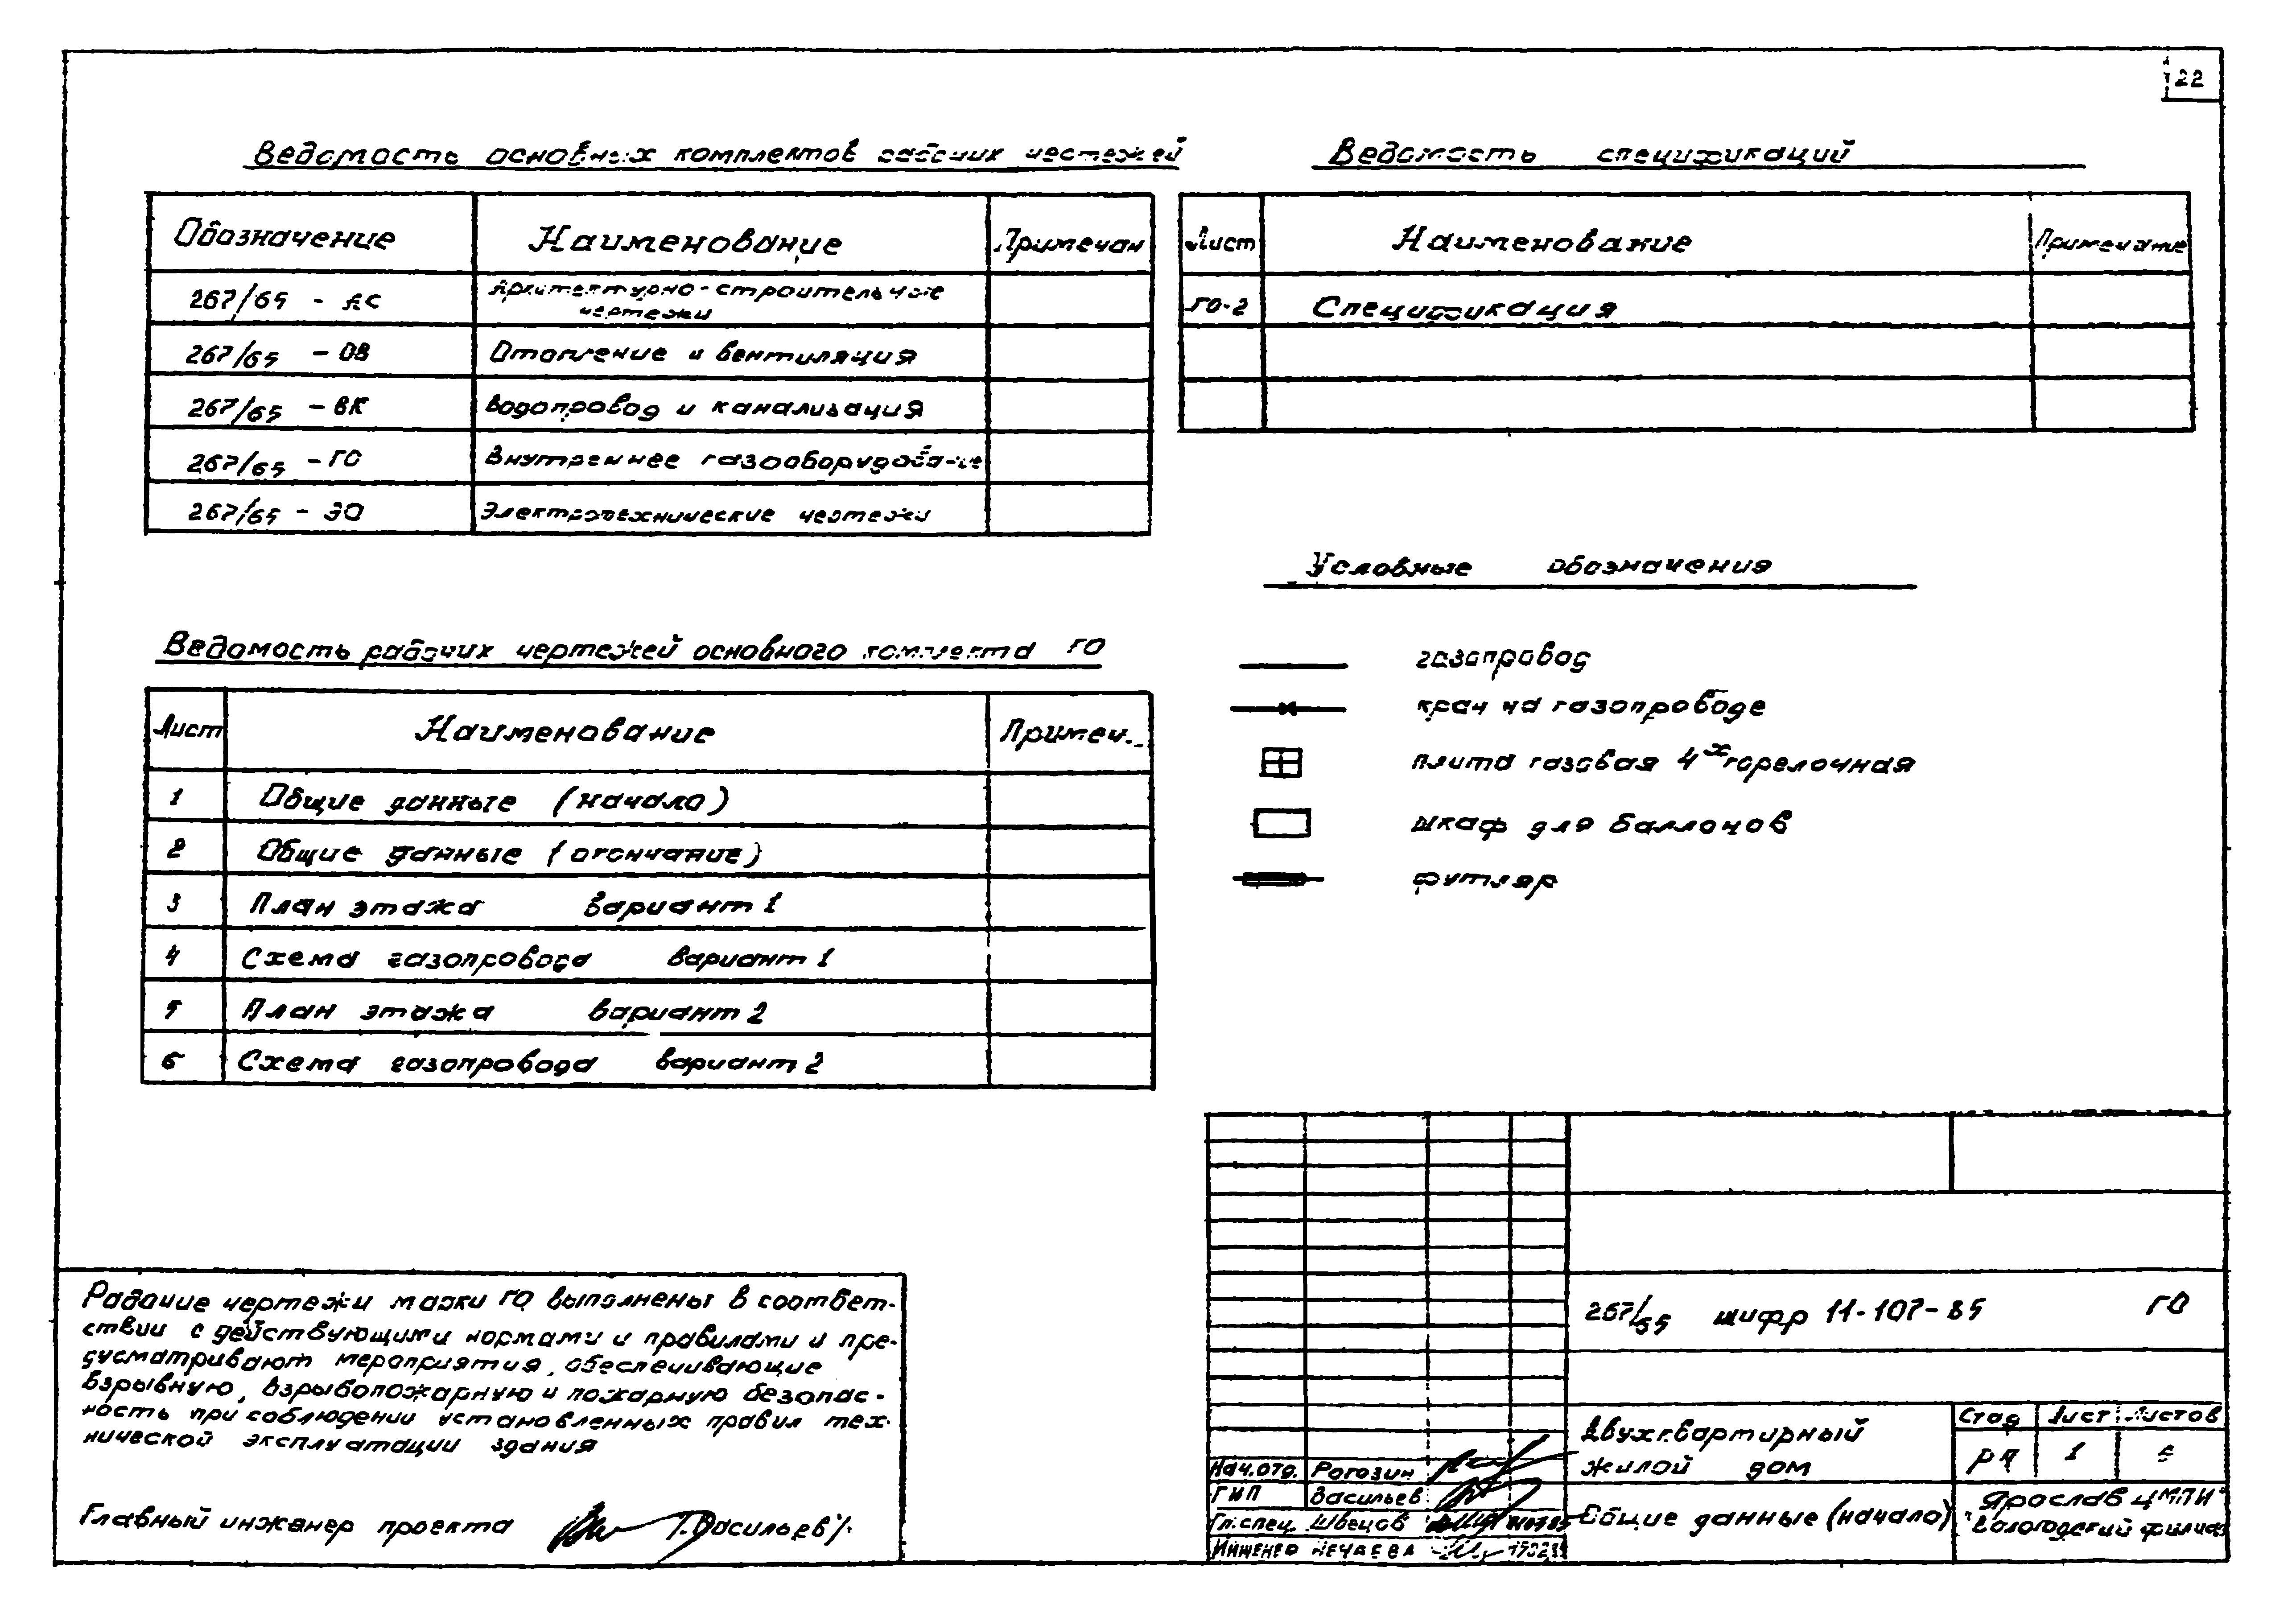 22
Ведомость основных комплектов рабочих чертежей
Обозначение Наименование Примечан
267/65 - АС Архитектурно-строительные
чертежи
267/65 - ОВ Отопление и вентиляция
267/65 - ВК Водопровод и канализация
267/65 - ГО Внутреннее газооборудование
267/65 - ЭО Электротехнические чертежи
Ведомость спецификаций
Лист Наименование Примечание
ГО-2 Спецификация
Условные обозначения
газопровод
кран на газопроводе
плита газовая 4х горелочная
шкаф для баллонов
футляр
Ведомость рабочих чертежей основного комплекта ГО
Лист Наименование Примеч.
1 Общие данные (начало)
2 Общие данные (окончание)
3 План этажа вариант 1
4 Схема газопровода вариант 1
5 План этажа вариант 2
6 Схема газопровода вариант 2
Рабочие чертежи марки ГО выполнены в соответ-
ствии с действующими нормами и правилами и пре-
дусматривают мероприятия, обеспечивающие
взрывную, взрывопожарную и пожарную безопас-
ность при соблюдении установленных правил тех-
нической эксплуатации здания
Главный инженер проекта Г. Васильев
267/65 шифр 11-107-85 ГО
Двухквартирный
жилой дом
Стад Лист Листов
РП 1
Общие данные (начало)
Ярослав ЦМПИ
Вологодский филиал
Нач.отд. Рогозин
ГИП Васильев
Гл.спец. Швецов
Инженер Нечаева